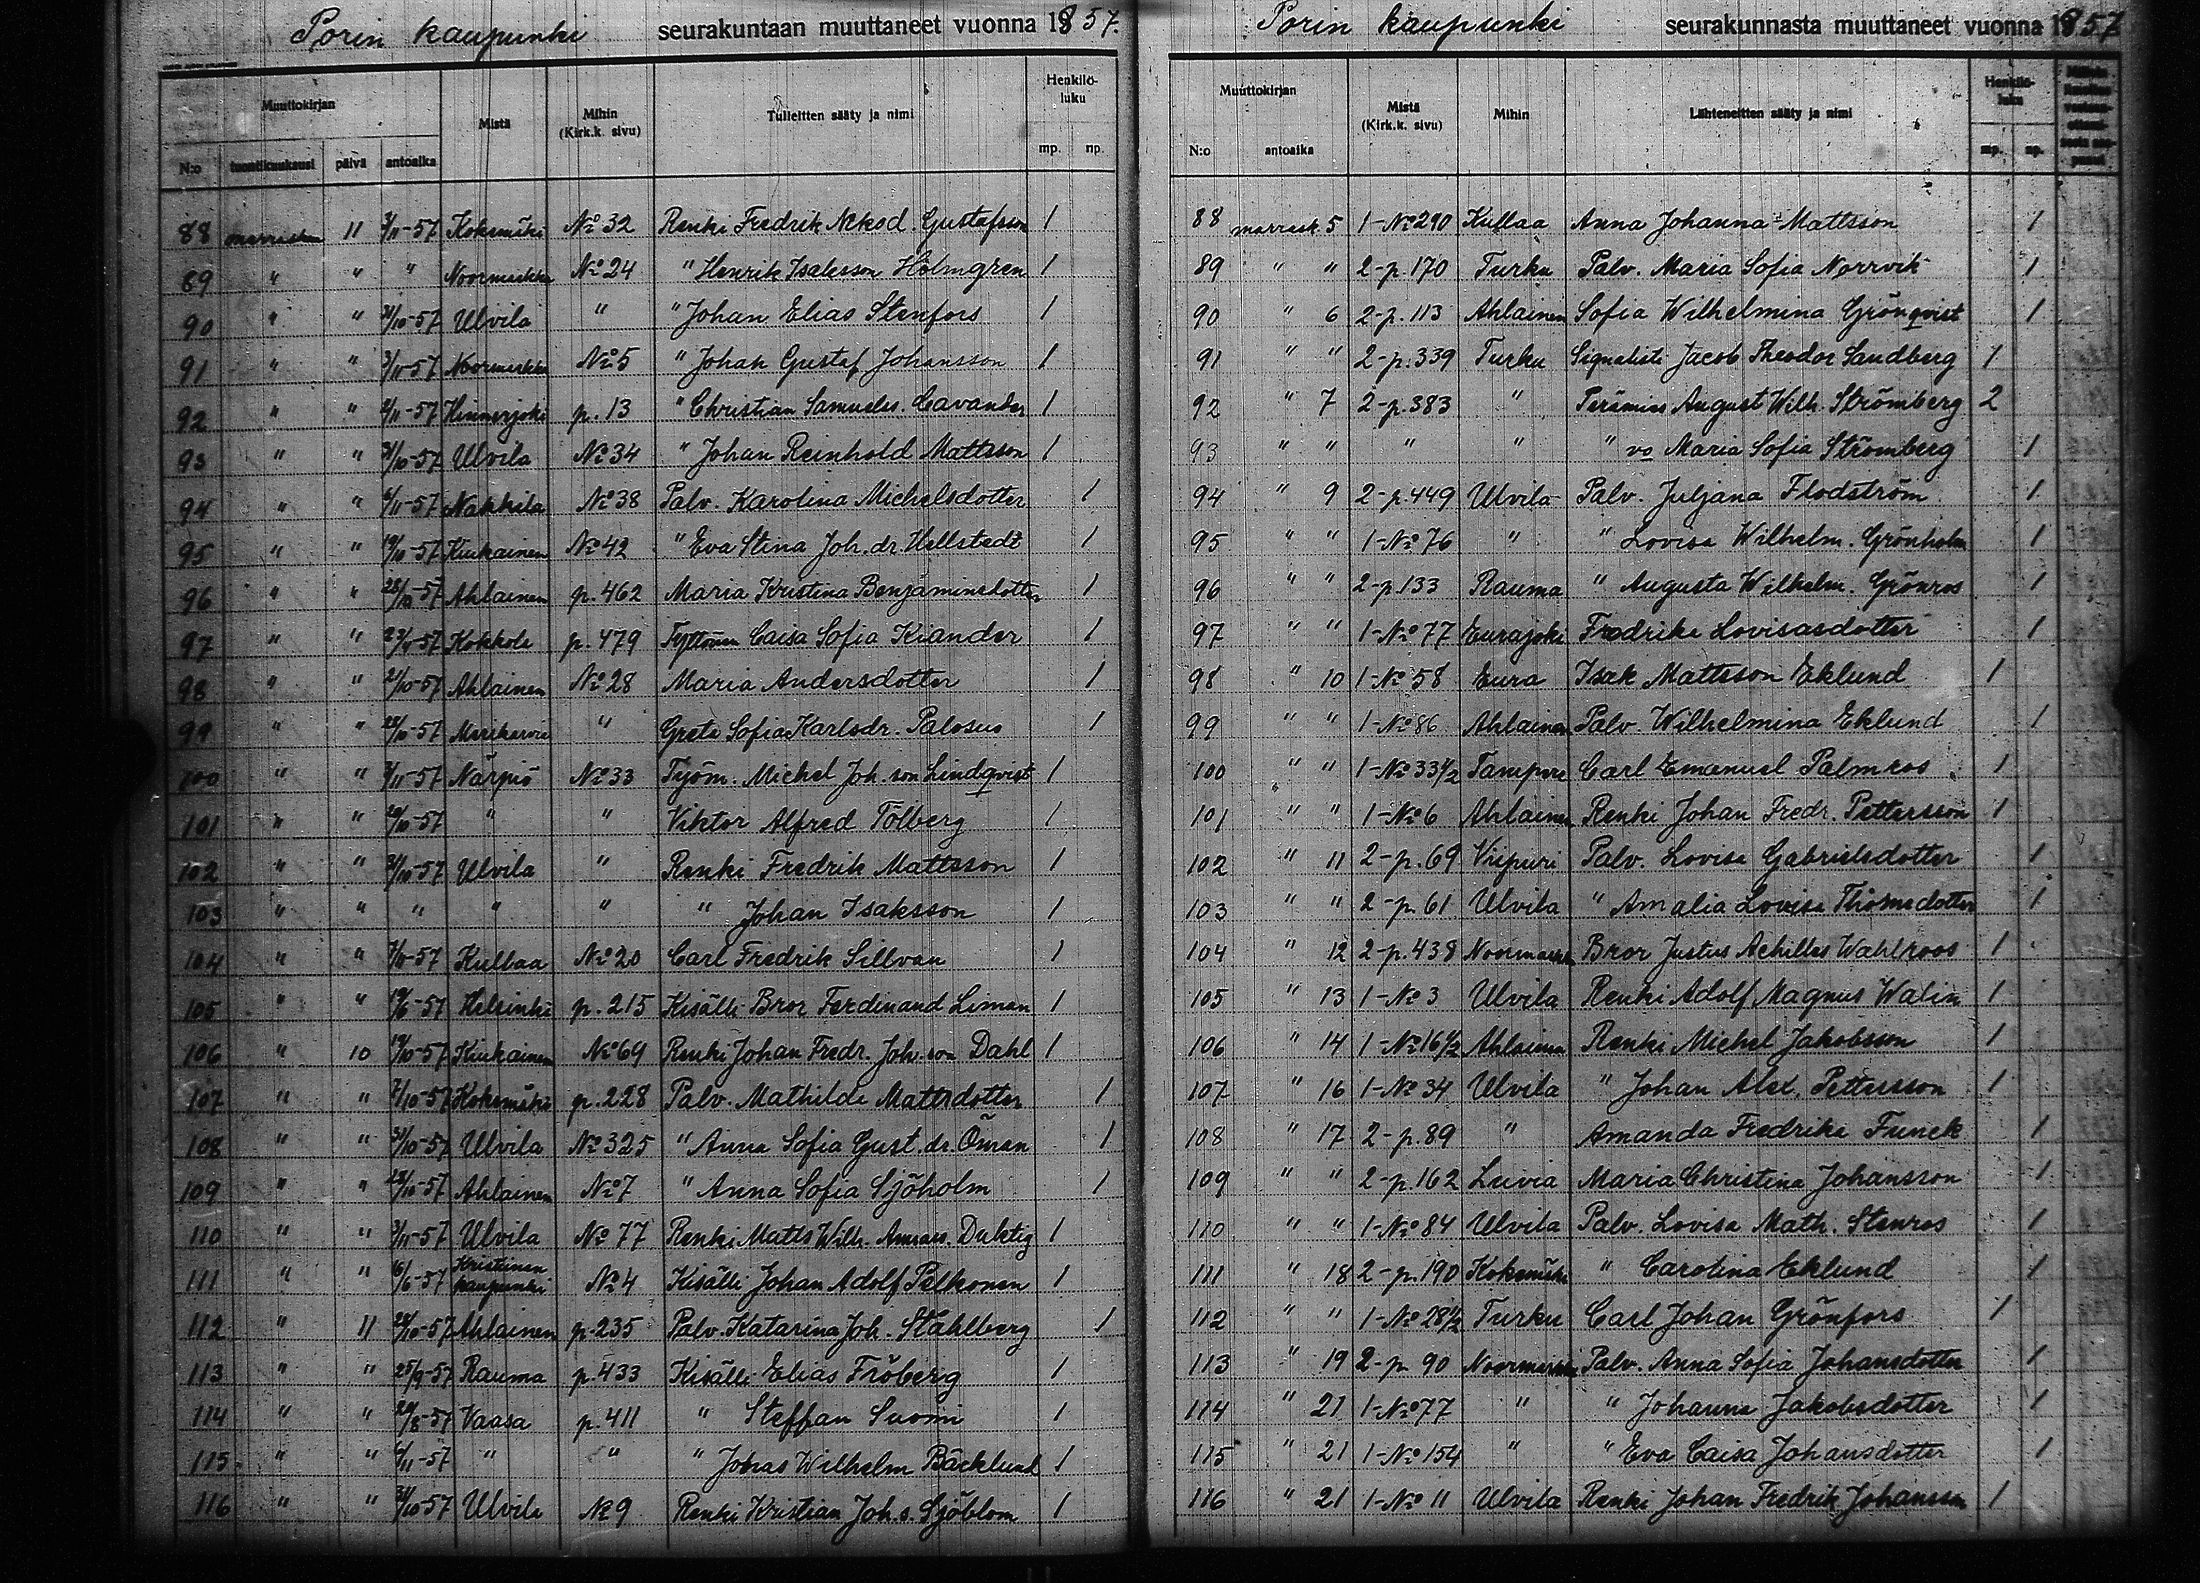 Porin kaupunki seurakuntaan muuttaneet vuonna 1857.
Muuttokirjan Mistä Mihin (Kirk.k. sivu) Tulleitten sääty ja nimi Henkilöluku
N:o tuontikuukausi päivä antoaika mp. np.
88 marrask. 11 3/11-57 Kokemäki No 32 Renki Fredrik Nekod. Gustafsson 1
89 " " " Noormarkku No 24 " Henrik Isaksson Holmgren 1
90 " " 31/10-57 Ulvila " " Johan Elias Stenfors 1
91 " " 3/11-57 Noormarkku No 5 " Johan Gustaf Johansson 1
92 " " 4/11-57 Hinnerjoki p. 13 " Christian Samuels. Cavander 1
93 " " 31/10-57 Ulvila No 34 " Johan Reinhold Mattsson 1
94 " " 6/11-57 Nakkila No 38 Palv. Karolina Michelsdotter 1
95 " " 19/10-57 Kiukainen No 42 " Eva Stina Joh. dr. Hellstedt 1
96 " " 28/10-57 Ahlainen p. 462 Maria Kristina Benjaminsdotter 1
97 " " Kokkola p. 479 Caisa Sofia Kiander 1
98 " " 21/10-57 Ahlainen No 28 Maria Andersdotter 1
99 " " 28/10-57 Merikarvia " Greta Sofia Karlsdr. Palosus 1
100 " " 3/11-57 Närpiö No 33 Työm. Michel Joh. son Lindqvist 1
101 " " 20/10-57 " " Viktor Alfred Tölberg 1
102 " " 31/10-57 Ulvila " Renki Fredrik Mattsson 1
103 " " " " " " Johan Isaksson 1
104 " " 7/11-57 Kullaa No 20 Carl Fredrik Sillvan 1
105 " " 19/6-57 Helsinki p. 215 Kisälli Bror Ferdinand Liman 1
106 " 10 19/10-57 Kiukainen No 69 Renki Johan Fredr. Joh. son Dahl 1
107 " " 7/10-57 Kokemäki p. 228 Palv. Mathilda Mattsdotter 1
108 " " 31/10-57 Ulvila No 325 " Anna Sofia Gust. dr. Öman 1
109 " " 28/10-57 Ahlainen No 7 " Anna Sofia Sjöholm 1
110 " " 3/11-57 Ulvila No 77 Renki Matts Wilh. Duktig 1
111 " " 16/6-57 Kristiinan kaupunki No 4 Kisälli Johan Adolf Pelkonen 1
112 " 11 28/10-57 Ahlainen p. 235 Palv. Katarina Joh. Ståhlberg 1
113 " " 25/9-57 Rauma p. 433 Kisälli Elias Fröberg 1
114 " " 29/8-57 Vaasa p. 411 " Steffan Suomi 1
115 " " 6/11-57 " " " Jonas Wilhelm Bäcklund 1
116 " " 31/10-57 Ulvila No 9 Renki Kristian Joh. s. Sjöblom 1
Porin kaupunki seurakunnasta muuttaneet vuonna 1857
Muuttokirjan Mistä (Kirk.k. sivu) Mihin Lähteneitten sääty ja nimi Henkilöluku
N:o antoaika mp. np.
88 marrask. 5 1-No 290 Kullaa Anna Johanna Mattsson 1
89 " " 2-p. 170 Turku Palv. Maria Sofia Norrvik 1
90 " 6 2-p. 113 Ahlainen Sofia Wilhelmina Grönqvist 1
91 " " 2-p. 339 Turku Signalisti Jacob Theodor Sandberg 1
92 " 7 2-p. 383 " Perämies August Wilh. Strömberg 2
93 " " " " " vo Maria Sofia Strömberg 1
94 " 9 2-p. 449 Ulvila Palv. Juljana Flodström 1
95 " " 1-No 76 " " Lovisa Wilhelm. Grönholm 1
96 " " 2-p. 133 Rauma " Augusta Wilhelm. Grönros 1
97 " " 1-No 77 Eurajoki Fredrika Lovisasdotter 1
98 " 10 1-No 58 Eura Isak Mattsson Eklund 1
99 " " 1-No 86 Ahlainen Palv. Wilhelmina Eklund 1
100 " " 1-No 33 1/2 Tampere Carl Emanuel Palmros 1
101 " " 1-No 6 Ahlainen Renki Johan Fredr. Pettersson 1
102 " 11 2-p. 69 Viipuri Palv. Lovisa Gabrielsdotter 1
103 " " 2-p. 61 Ulvila " Amalia Lovisa Thomasdotter 1
104 " 12 2-p. 438 Noormarkku Bror Justus Achilles Wahlroos 1
105 " 13 1-No 3 Ulvila Renki Adolf Magnus Walin 1
106 " 14 1-No 16 1/2 Ahlainen Renki Michel Jakobsson 1
107 " 16 1-No 34 Ulvila " Johan Alex. Pettersson 1
108 " 17 2-p. 89 " Amanda Fredrika Funck 1
109 " " 2-p. 162 Luvia Maria Christina Johansson 1
110 " " 1-No 84 Ulvila Palv. Lovisa Math. Stenros 1
111 " 18 2-p. 190 Kokemäki " Carolina Eklund 1
112 " " 1-No 28 1/2 Turku Carl Johan Grönfors 1
113 " 19 2-p. 90 Noormarkku Palv. Anna Sofia Johansdotter 1
114 " 21 1-No 77 " " Johanna Jakobsdotter 1
115 " 21 1-No 154 " " Eva Caisa Johansdotter 1
116 " 21 1-No 11 Ulvila Renki Johan Fredrik Johansson 1